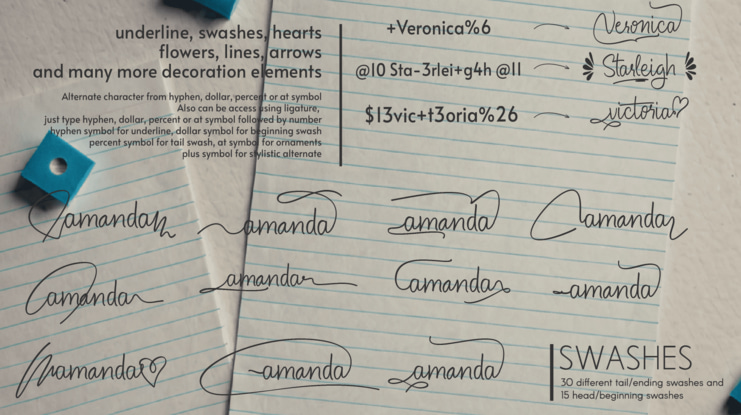 underline, swashes, hearts
flowers, lines, arrows
and many more decoration elements
Alternate character from hyphen, dollar, percent or at symbol
Also can be access using ligature,
just type hyphen, dollar, percent or at symbol followed by number
hyphen symbol for underline, dollar symbol for beginning swash
percent symbol for tail swash, at symbol for ornaments
plus symbol for stylistic alternate
+Veronica%6 Veronica
@10 Sta-3rlei+g4h @11 Starleigh
$13vic+t3oria%26 victoria
amanda amanda amanda amanda
amanda amanda amanda amanda
amanda amanda amanda
SWASHES
30 different tail/ending swashes and
15 head/beginning swashes